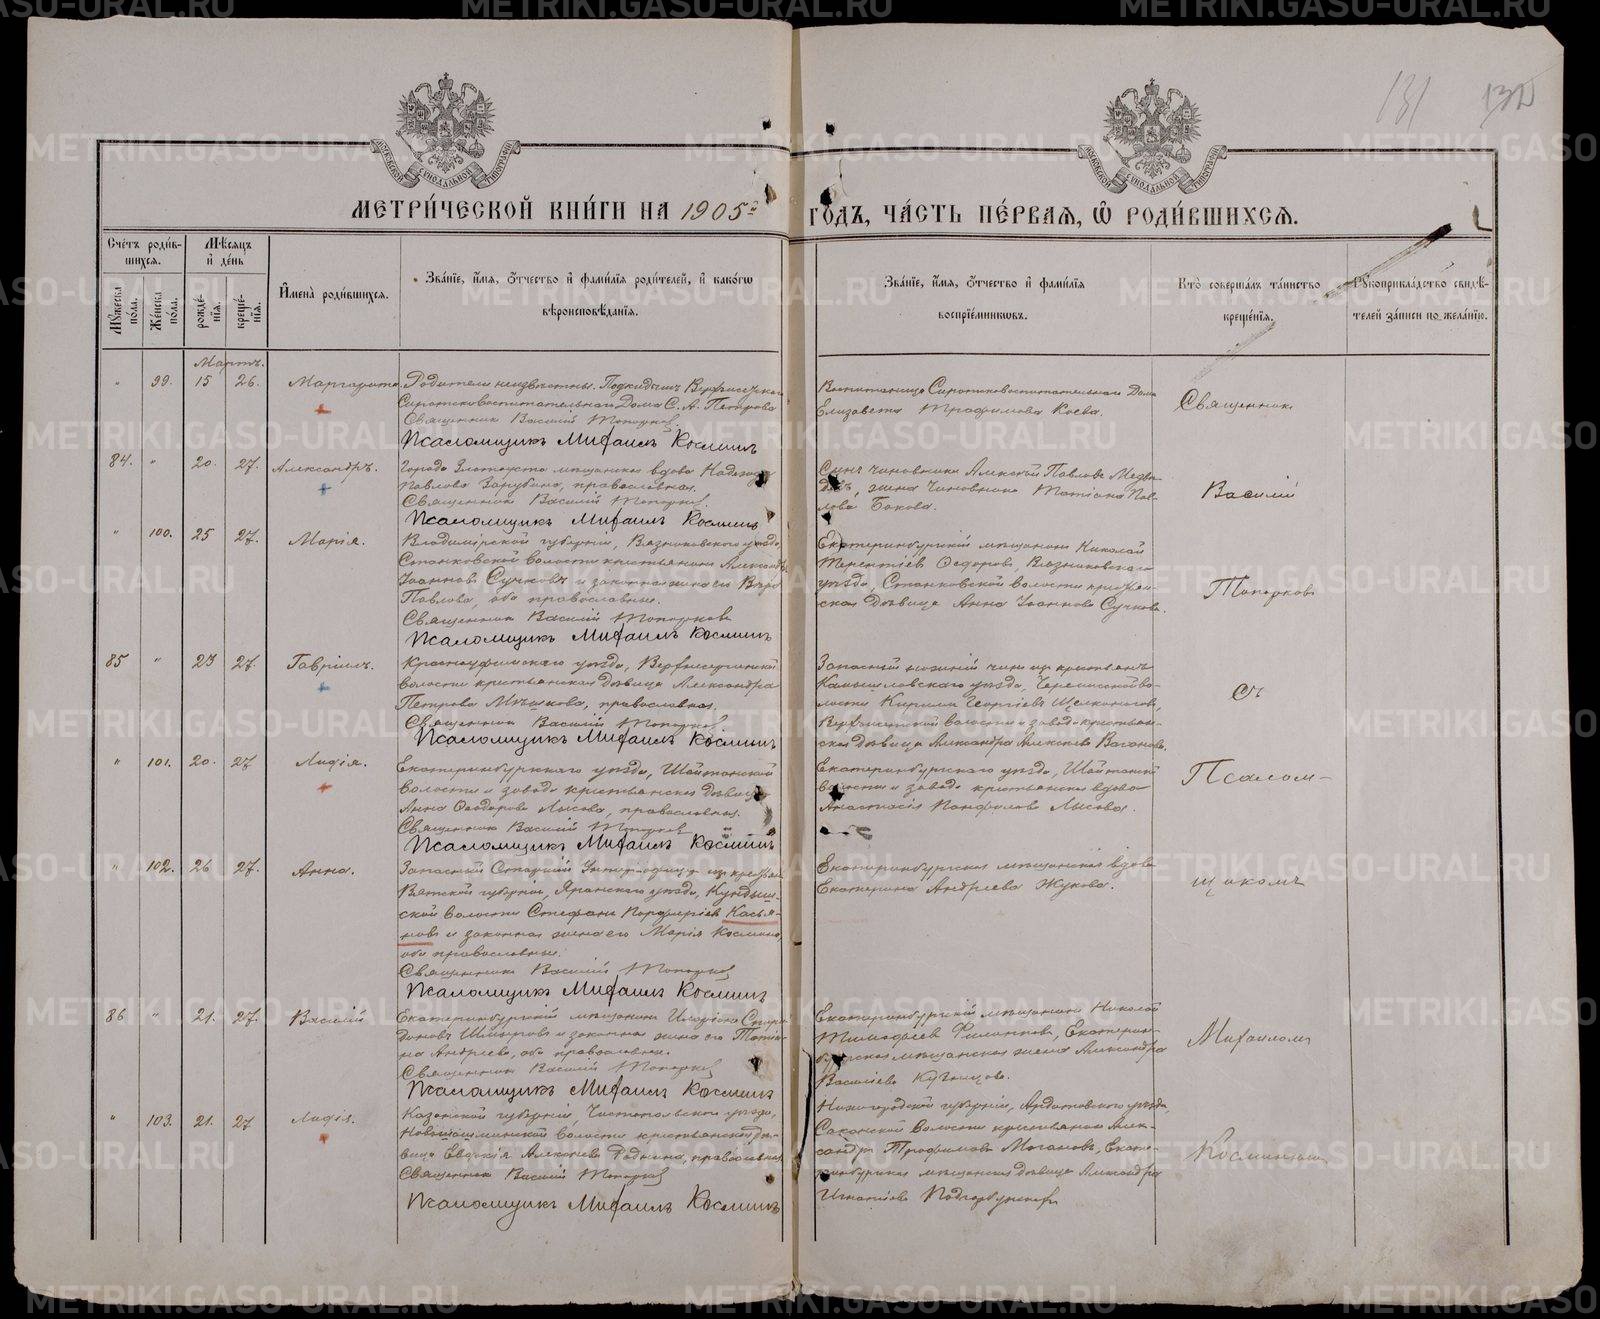 131
МЕТРИ́ЧЕСКОЙ КНИ́ГИ НА 1905й ГО́ДЪ, ЧА́СТЬ ПЕ́РВАЯ, Ѡ РОДИ́ВШИХСЯ.
Сче́тъ роди́в-
шихся.
Мѣ́сяцъ
и де́нь
Мꙋ́жеска по́ла.
Же́нска по́ла.
рожде́-
нїя.
креще́-
нїя.
И҆мена̀ роди́вшихся.
Зва́нїе, и҆́мя, ѻ҆́тчество и҆ фами́лїя роди́телей, и҆ како́гѡ
вѣроисповѣ́данїя.
Зва́нїе, и҆́мя, ѻ҆́тчество и҆ фами́лїя
воспрїе́мникѡвъ.
Кто̀ соверша́лъ та́инство
креще́нїя.
Рꙋкоприкла́дство свидѣ́-
телей за́писи по жела́нїю.
Мартъ.
" 99. 15 26. Маргарита. Родители неизвѣстны. Подкидышъ
Сиротсковоспитательнаго Дома С. А. Петрова
Священникъ Василій Топорковъ
Псаломщикъ Михаилъ Косминъ
Воспитанница Сиротсковоспитательнаго Дома
Елизавета Трофимова
Священник
84. " 20. 27. Александръ. Города Златоуста мѣщанская вдова Надежда
Павлова Зарубина, православная.
Священникъ Василій Топорковъ
Псаломщикъ Михаилъ Косминъ
Сынъ чиновника Алексѣй Павловъ Медвѣ-
девъ, жена чиновника Татіана Пав-
лова Бокова.
Василій
" 100. 25 27. Марія. Владимірской губерніи, Вязниковскаго уѣзда,
Станковской волости крестьянинъ Александръ
Іоанновъ Сучковъ и законная жена его Вѣра
Павлова, оба православные.
Священникъ Василій Топорковъ
Псаломщикъ Михаилъ Косминъ
Екатеринбургскій мѣщанинъ Николай
Терентіевъ Ѳедоровъ, Вязниковскаго
уѣзда, Станковской волости крестьян-
ская дѣвица Анна Іоаннова Сучкова.
Топорковъ
85 " 23 27. Гавріилъ. Красноуфимскаго уѣзда, Верхнесергинской
волости крестьянская дѣвица Александра
Петрова Мѣшкова, православная.
Священникъ Василій Топорковъ
Псаломщикъ Михаилъ Косминъ
Запасный нижній чинъ изъ крестьянъ
Камышловскаго уѣзда, во-
лости Кириллъ Георгіевъ
волости и завода крестьян-
ская дѣвица Александра Алексѣева
съ
" 101. 20. 27 Лидія. Екатеринбургскаго уѣзда, Шайтанской
волости и завода крестьянская дѣвица
Анна Ѳеодорова Лысова, православная.
Священникъ Василій Топорковъ
Псаломщикъ Михаилъ Косминъ
Екатеринбургскаго уѣзда, Шайтанской
волости и завода крестьянская вдова
Анастасія Панфилова Лысова.
Псалом-
" 102. 26 27. Анна. Запасный Старшій Унтеръ-офицеръ изъ крестьянъ
Вятской губерніи, Яранскаго уѣзда, Кундыш-
ской волости Стефанъ Порфиріевъ Касья-
новъ и законная жена его Марія Космина,
оба православные.
Священникъ Василій Топорковъ
Псаломщикъ Михаилъ Косминъ
Екатеринбургская мѣщанская вдова
Екатерина Андреева Жукова.
щикомъ
86 " 21. 27. Василій Екатеринбургскій мѣщанинъ Спири-
доновъ и законная жена его Татіа-
на Андреева, оба православные.
Священникъ Василій Топорковъ
Псаломщикъ Михаилъ Косминъ
Екатеринбургскій мѣщанинъ Николай
Тимофеевъ Филипповъ, Екатерин-
бургская мѣщанская жена Александра
Василіева Кузнецова.
Михаиломъ
" 103. 21. 27 Лидія. Казанской губерніи, Чистопольскаго уѣзда,
Новошешминской волости крестьянская дѣ-
вица Евдокія Алексѣева Роднина, православная
Священникъ Василій Топорковъ
Псаломщикъ Михаилъ Косминъ
Нижегородской губерніи, Ардатовскаго уѣзда,
Саконской волости крестьянинъ Алек-
сандръ Трофимовъ Екате-
ринбургская мѣщанская дѣвица Александра
Игнатіева
Косминымъ
METRIKI.GASO-URAL.RU